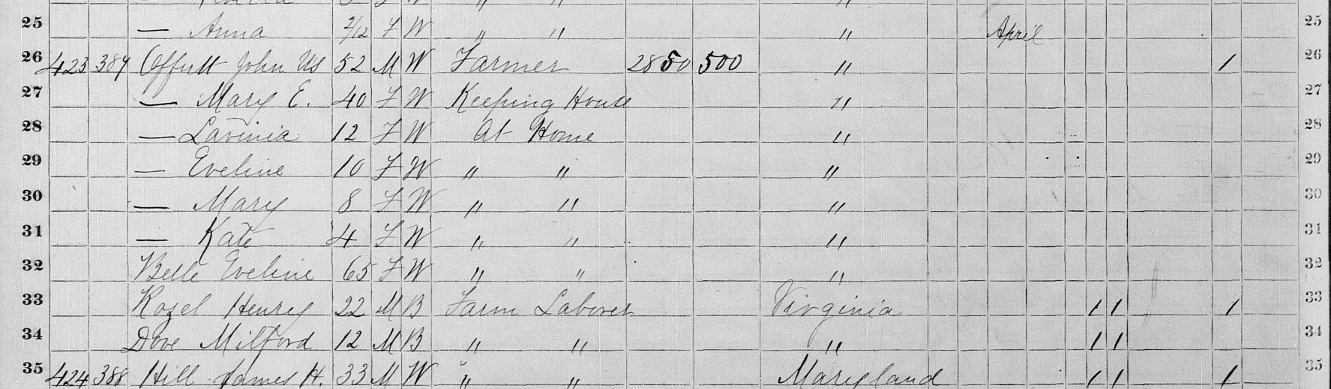 25 — Anna 2/12 F W " " " April 25
26 423 387 Offutt John Ws 52 M W Farmer 2850 500 " 1 26
27 — Mary E. 40 F W Keeping House " 27
28 — Lavinia 12 F W At Home " 28
29 — Eveline 10 F W " " " 29
30 — Mary 8 F W " " " 30
31 — Kate 4 F W " " " 31
32 Belle Eveline 65 F W " " " 32
33 Kozel Henry 22 M B Farm Laborer Virginia 1 1 1 33
34 Dove Milford 12 M B " " " 1 1 34
35 424 388 Hill James H. 33 M W " " Maryland 1 1 1 35